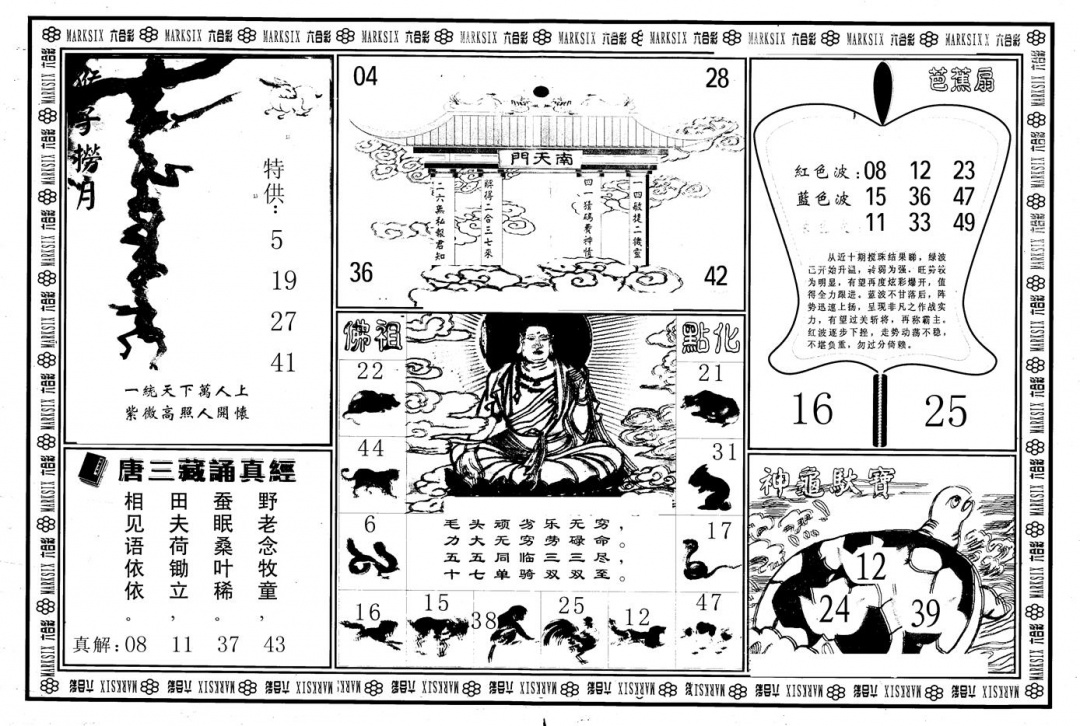 MARKSIX 六合彩 MARKSIX 六合彩 MARKSIX 六合彩 MARKSIX 六合彩 MARKSIX 六合彩 MARKSIX 六合彩 MARKSIX 六合彩 MARKSIX 六合彩 MARKSIX 六合彩 MARKSIX 六合彩
猴子撈月
特供:
5
19
27
41
一統天下萬人上
紫微高照人開懷
04
28
南天門
一四敏捷二機靈
四一猜碼費神怪
將得二合三七來
二六無私報君知
36
42
芭蕉扇
紅色波:08 12 23
藍色波 15 36 47
11 33 49
从近十期搅珠结果睇，绿波
已开始升温，转弱为强，旺势较
为明显，有望再度炫彩爆开，值
得全力跟进。蓝波不甘落后，阵
势迅速上扬，呈现非凡之作战实
力，有望过关斩将，再称霸主。
红波逐步下挫，走势动荡不稳，
不堪负重，勿过分倚赖。
16
25
佛祖
點化
22
21
44
31
6
17
毛头顽劣乐无穷，
力大无穷劳碌命。
五五同临三三尽，
十七单骑双双至。
16
15
38
25
12
47
唐三藏誦真經
野老念牧童，
蚕眠桑叶稀。
田夫荷锄立，
相见语依依。
真解:08 11 37 43
神龜馱寶
12
24
39
MARKSIX 六合彩 MARKSIX 六合彩 MARKSIX 六合彩 MARKSIX 六合彩 MARKSIX 六合彩 MARKSIX 六合彩 MARKSIX 六合彩 MARKSIX 六合彩 MARKSIX 六合彩 MARKSIX 六合彩